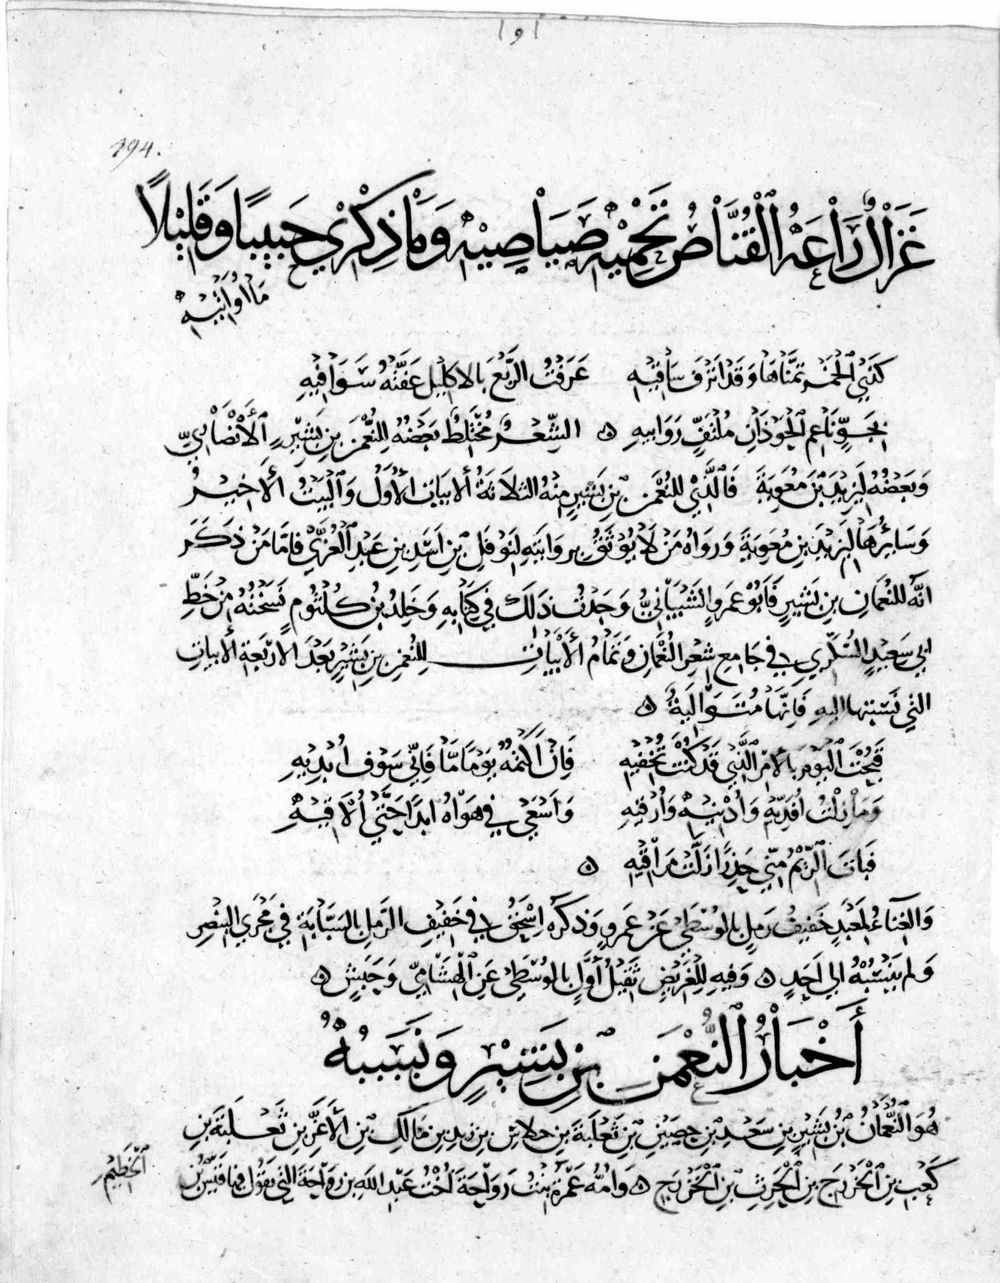 ١٥١
294.
غَزَالٌ رَاعَهُ الْقُنَّاصُ تَحْمِيهِ صَيَاصِيهِ وَمَا ذِكْرِي حَبِيبًا وَقَلِيلًا
مَا أُوَاتِيهِ
كَذِي الْخَمْرِ تَمَنَّاهَا وَقَدْ أَنْزَفَ سَاقِيهِ عَرَفْتُ الرَّبْعَ بِالإِكْلِيلِ عَفَّتْهُ سَوَافِيهِ
بِجَوٍّ نَاعِمِ الْحَوْذَانِ مُلْتَفٍّ رَوَابِيهِ ه الشِّعْرُ مُخْتَلِطٌ بَعْضُهُ لِلنُّعْمَنِ بْنِ بَشِيرٍ الْأَنْصَارِيِّ
وَبَعْضُهُ لِيَزِيدَ بْنِ مُعَوِيَةَ فَالَّذِي لِلنُّعْمَنِ بْنِ بَشِيرٍ مِنْهُ الثَّلَاثَةُ الْأَبْيَاتِ الْأُوَلُ وَالْبَيْتُ الْأَخِيرُ
وَسَائِرُهَا لِيَزِيدَ بْنِ مُعَوِيَةَ وَرَوَاهُ مَنْ لَا يُوثَقُ بِرِوَايَتِهِ لِنَوْفَلِ بْنِ أَسَدِ بْنِ عَبْدِ الْعُزَّى فَأَمَّا مَنْ ذَكَرَ
أَنَّهُ لِلنُّعْمَانِ بْنِ بَشِيرٍ فَأَبُو عَمْرٍو الشَّيْبَانِيُّ وَجَدْتُ ذَلِكَ فِي كِتَابِهِ وَخَلِدُ بْنُ كُلْثُومٍ نَسَخْتُهُ مِنْ خَطِّ
أَبِي سَعِيدٍ السُّكَّرِيِّ فِي جَامِعِ شِعْرِ النُّعْمَانِ وَتَمَامُ الْأَبْيَاتِ لِلنُّعْمَنِ بْنِ بَشِيرٍ بَعْدَ الْأَرْبَعَةِ الْأَبْيَاتِ
الَّتِي نَسَبْتُهَا إِلَيْهِ فَإِنَّهَا مُتَوَالِيَةٌ ه
فَبُحْتَ الْيَوْمَ بِالْأَمْرِ الَّذِي قَدْ كُنْتَ تُخْفِيهِ فَإِنْ أَكْتُمْهُ يَوْمًا مَا فَإِنِّي سَوْفَ أُبْدِيهِ
وَمَا زِلْتُ أُفَدِّيهِ وَأُدْنِيهِ وَأَرْقِيهِ وَأَسْعَى فِي هَوَاهُ أَبَدًا حَتَّى أُلَاقِيهِ
فَبَاتَ الرِّيمُ مِنِّي حَذِرًا زَلَّتْ مَرَاقِيهِ ه
وَالْغِنَاءُ لِمَعْبَدٍ خَفِيفُ رَمَلٍ بِالْوُسْطَى عَنْ عَمْرٍو وَذَكَرَهُ إِسْحَقُ فِي خَفِيفِ الرَّمَلِ بِالسَّبَّابَةِ فِي مَجْرَى الْبِنْصِرِ
وَلَمْ يَنْسُبْهُ إِلَى أَحَدٍ ه وَفِيهِ لِلْغَرِيضِ ثَقِيلٌ أَوَّلُ بِالْوُسْطَى عَنِ الْهِشَامِيِّ وَحَبَشٍ ه
أَخْبَارُ النُّعْمَنِ بْنِ بَشِيرٍ وَنَسَبُهُ
هُوَ النُّعْمَانُ بْنُ بَشِيرِ بْنِ سَعْدِ بْنِ حُصَيْنِ بْنِ ثَعْلَبَةَ بْنِ خِلَاسِ بْنِ زَيْدِ بْنِ مَالِكِ بْنِ الْأَغَرِّ بْنِ ثَعْلَبَةَ بْنِ
كَعْبِ بْنِ الْخَزْرَجِ بْنِ الْحَرِثِ بْنِ الْخَزْرَجِ ه وَأُمُّهُ عَمْرَةُ بِنْتُ رَوَاحَةَ أُخْتُ عَبْدِ اللهِ بْنِ رَوَاحَةَ الَّتِي يَقُولُ فِيهَا قَيْسُ بْنُ
الْخَطِيمِ